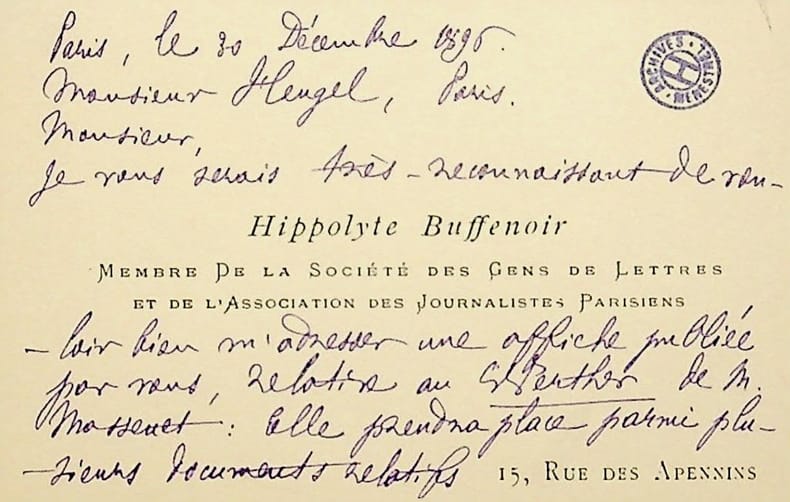 Paris, le 30 Décembre 1896.
Monsieur Heugel, Paris.
ARCHIVES · MENESTREL · H
Monsieur,
Je vous serais très-reconnaissant de vou-
Hippolyte Buffenoir
MEMBRE DE LA SOCIÉTÉ DES GENS DE LETTRES
ET DE L'ASSOCIATION DES JOURNALISTES PARISIENS
-loir bien m'adresser une affiche publiée
par vous, relative au Werther de M.
Massenet : Elle prendra place parmi plu-
-sieurs documents relatifs
15, RUE DES APENNINS